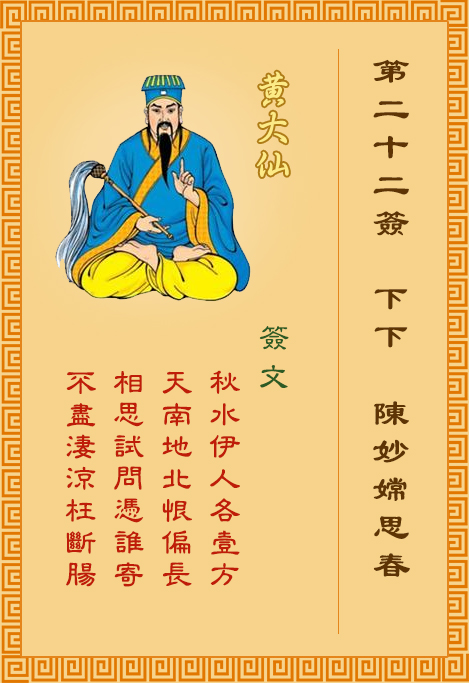 第二十二簽 下下 陳妙嫦思春
黄大仙
簽文
秋水伊人各壹方
天南地北恨偏長
相思試問憑誰寄
不盡淒涼枉斷腸